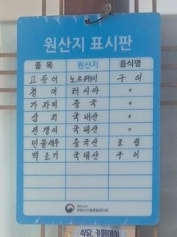 원산지 표시판
품목 원산지 음식명
고등어 노르웨이 구이
청어 러시아 〃
가자미 중국 〃
삼치 국내산 〃
볼갱이 국내산 〃
민물새우 중국산 조림
떡조기 국내산 구이